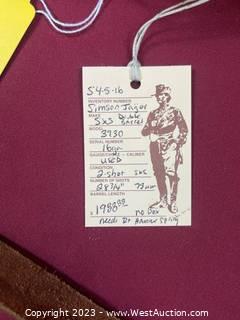 S4-5-16
INVENTORY NUMBER
Simson Jager
MAKE Double
SxS Barrel
MODEL
3730
SERIAL NUMBER
16ga
GAUGE/CHOKE - CALIBER
used
CONDITION
2-shot SxS
NUMBER OF SHOTS
28 3/4" 73cm
BARREL LENGTH
$1980.00 no Box
needs Rt Hammer Spring
Copyright 2023 - www.WestAuction.com